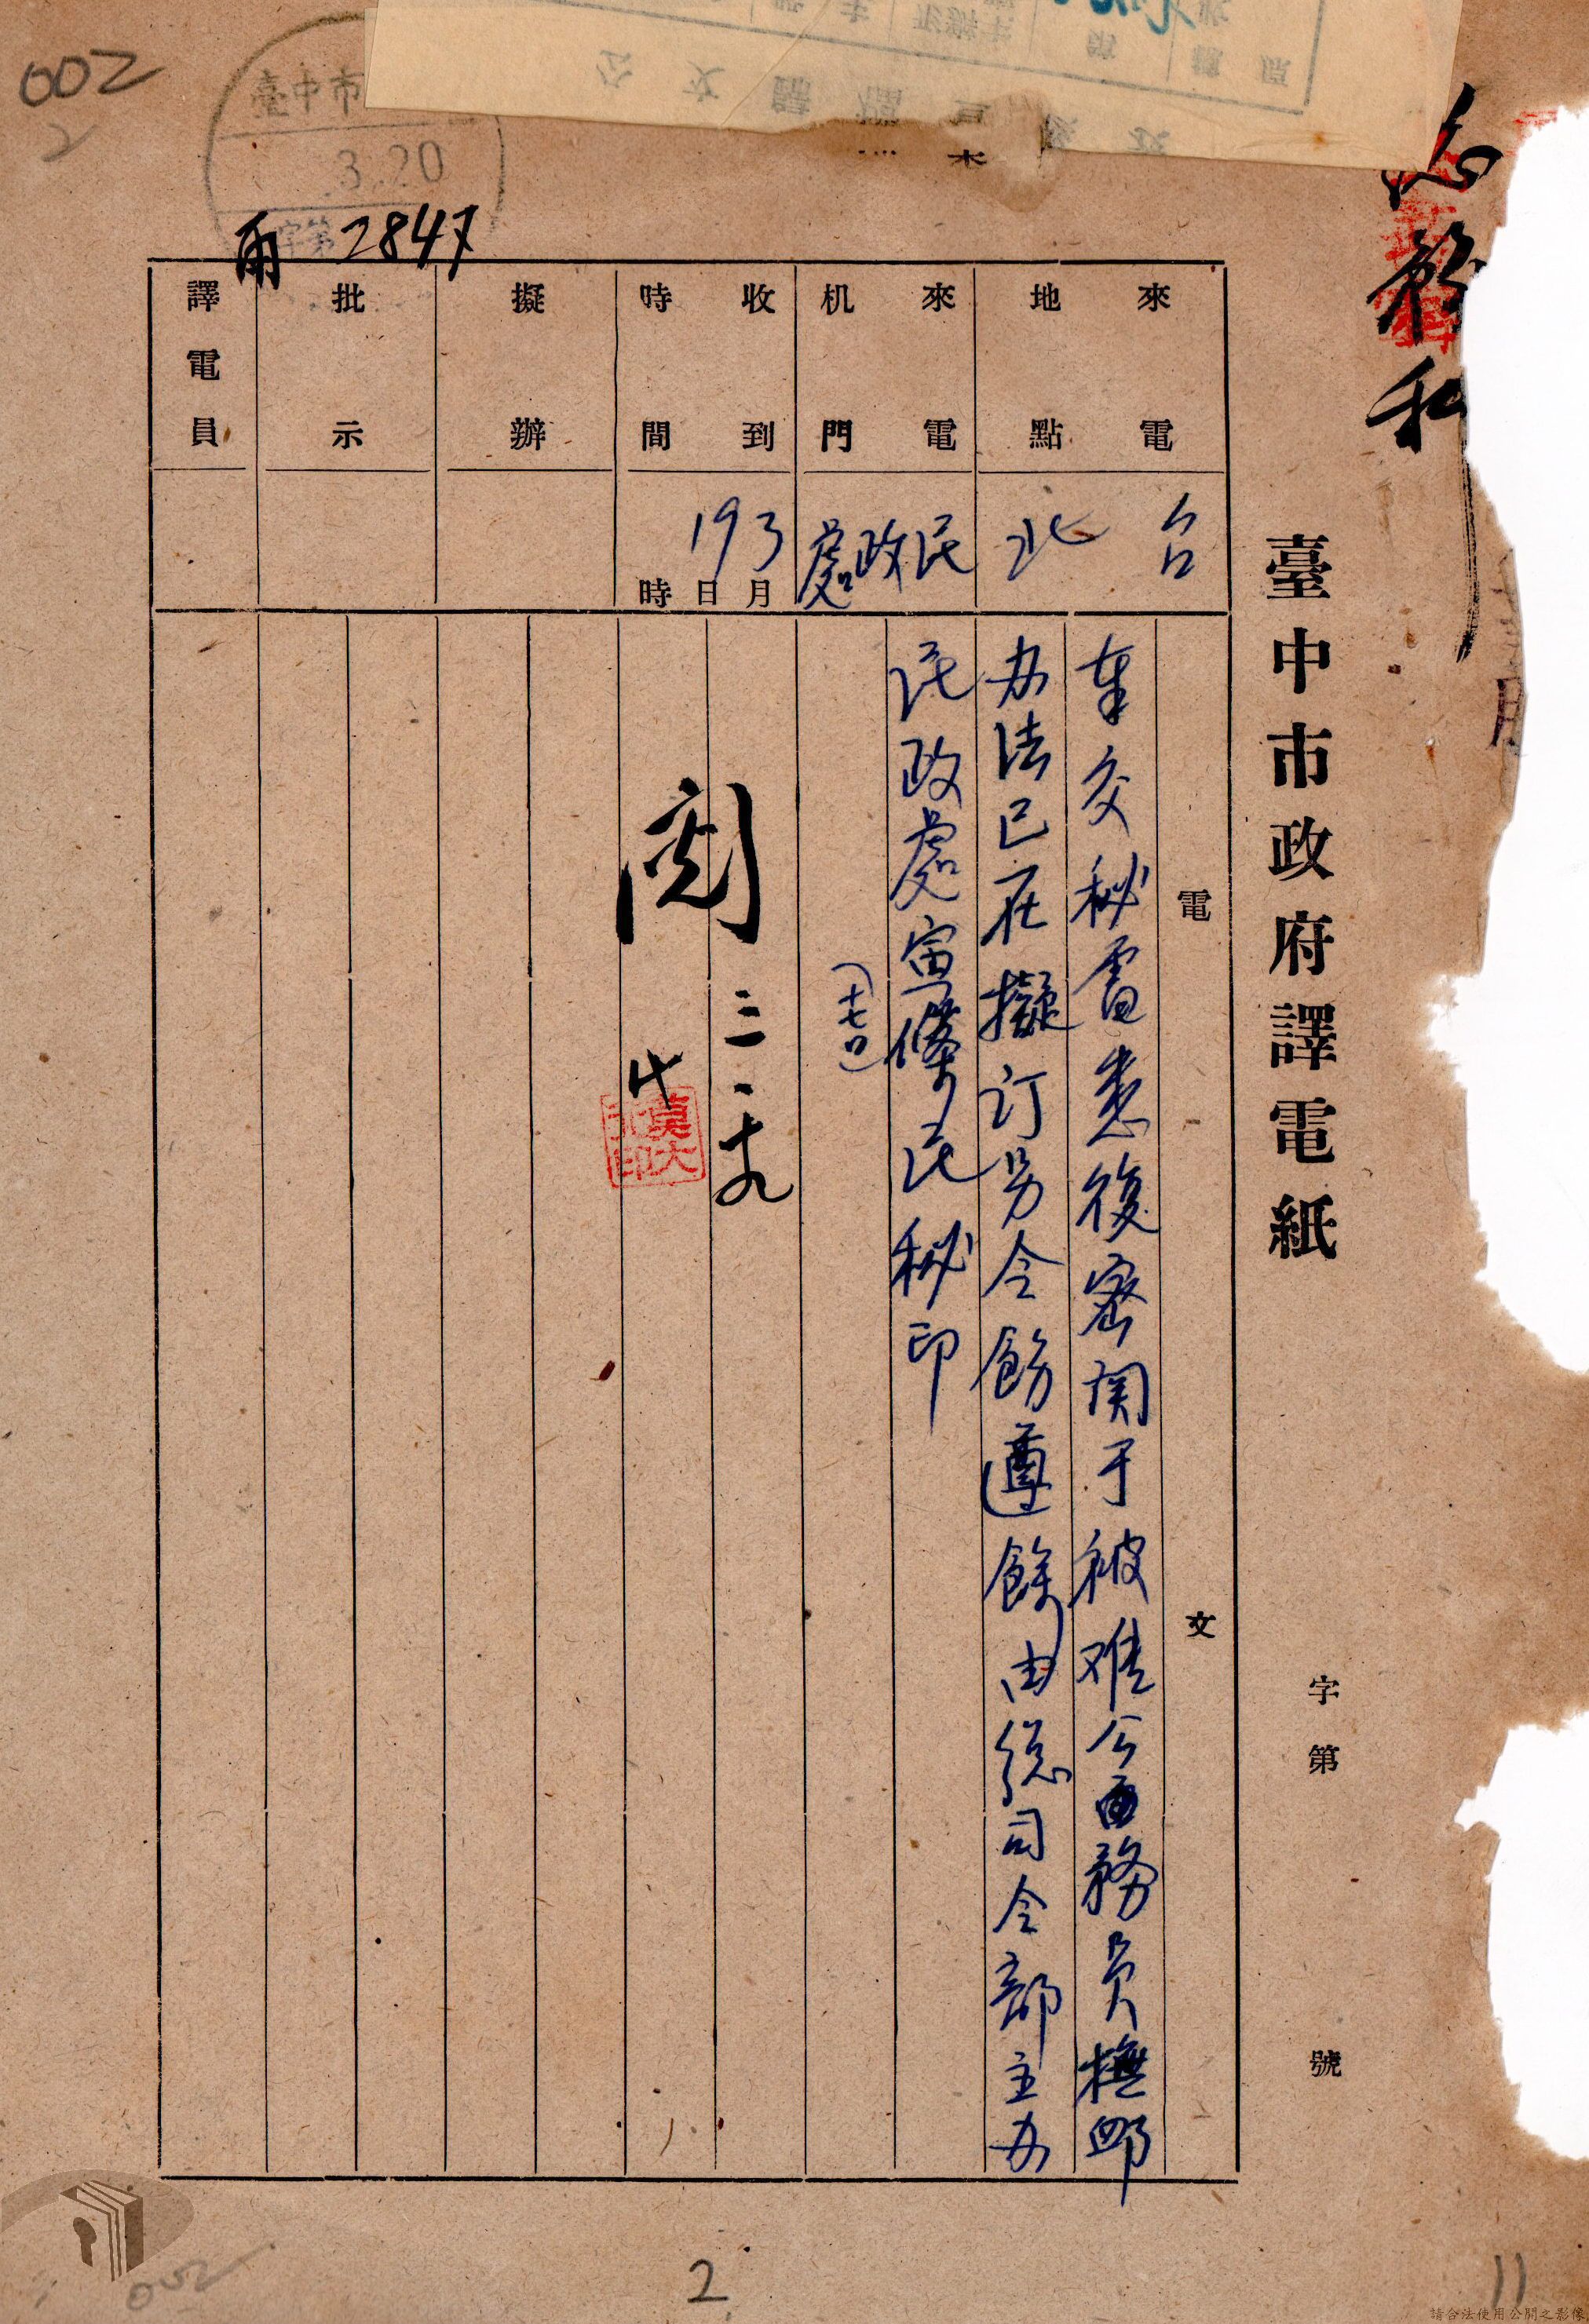 002
2
臺中市
3.20
字第
2847
臺中市政府譯電紙
字第 號
來電地點
台北
來電机門
民政處
收到時間
3月19日 時
擬辦
批示
譯電員
電文
秘書悉復密関于被难公務員撫卹
办法已在擬订另令飭遵餘由總司令部主办
民政處寅篠民秘印
(十七日)
閱
三.十九
2
002
11
請合法使用公開之影像